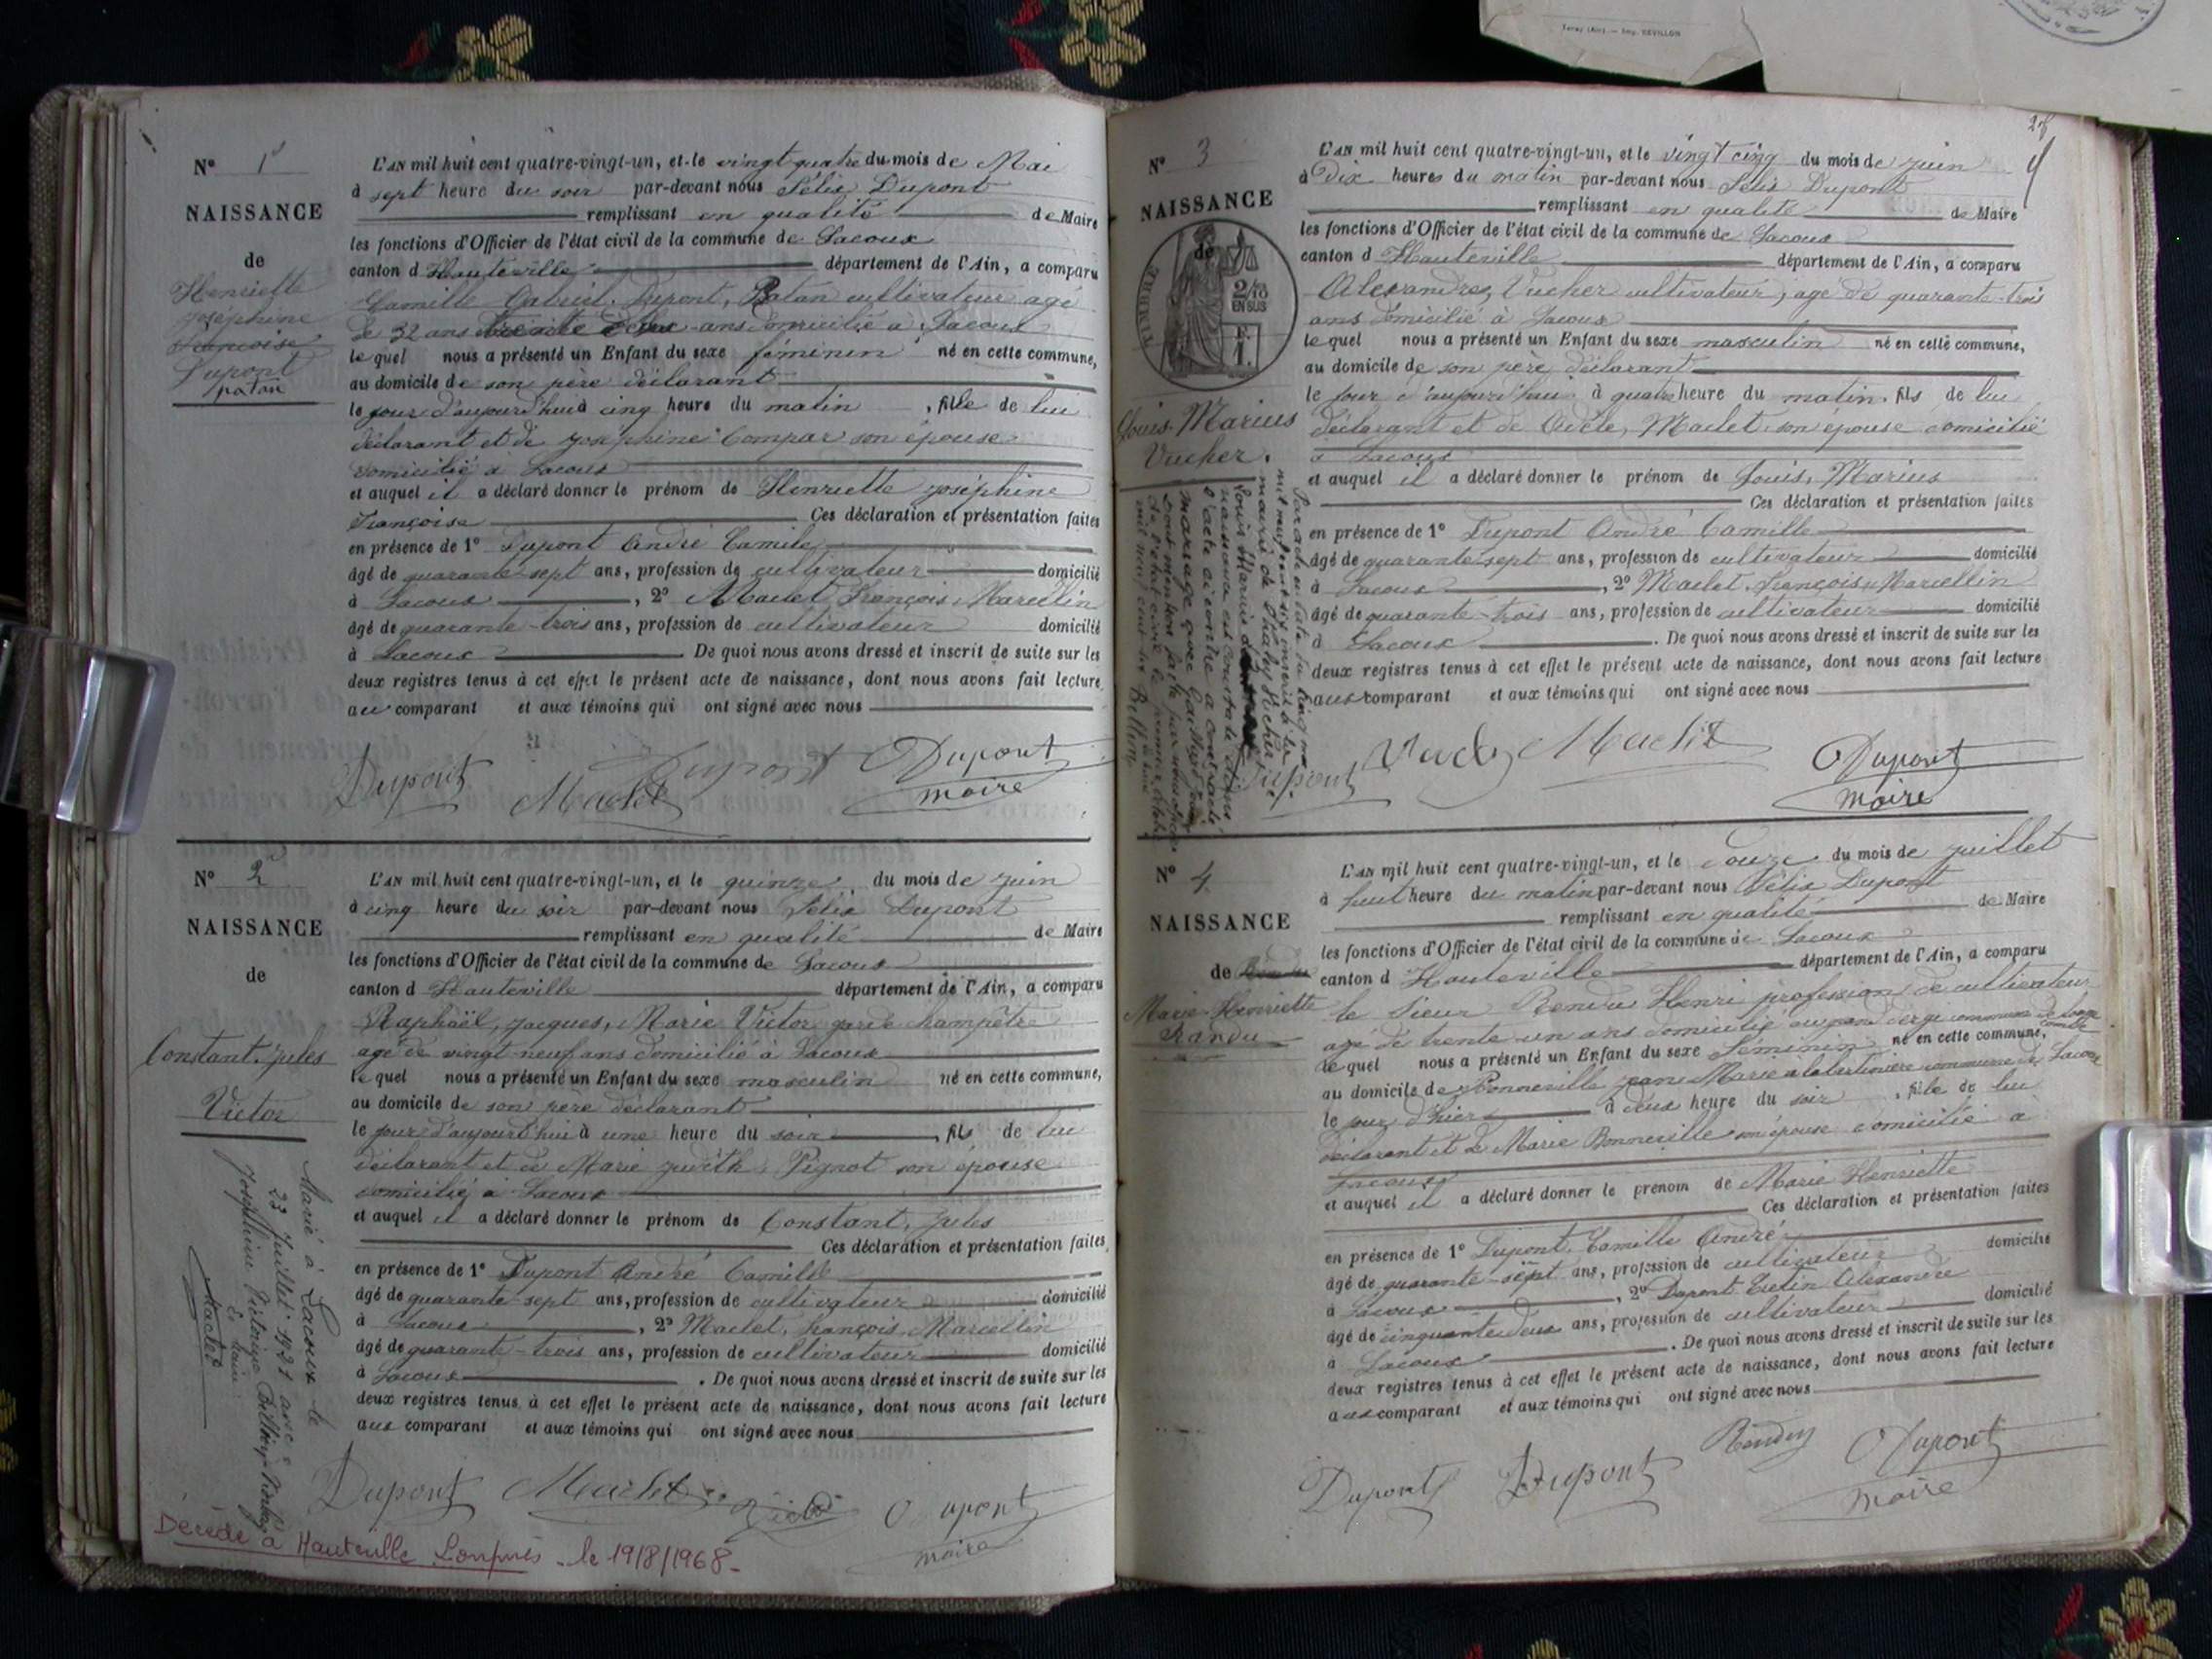 Imp. REVILLON
N° 1
NAISSANCE
de
Henriette
Joséphine
Françoise
Dupont
patan
L'AN mil huit cent quatre-vingt-un, et le vingt quatre du mois de Mai
à sept heure du soir par-devant nous Félix Dupont
remplissant en qualité de Maire
les fonctions d'Officier de l'état civil de la commune de Lacoux
canton d Hauteville département de l'Ain, a comparu
Camille Gabriel Dupont, Patan cultivateur agé
de 32 ans trente deux ans domicilié à Lacoux
le quel nous a présenté un Enfant du sexe féminin né en cette commune,
au domicile de son père déclarant
le jour d'aujourd'hui à cinq heure du matin, fille de lui
déclarant et de Joséphine Compar son épouse
domicilié à Lacoux
et auquel il a déclaré donner le prénom de Henriette Joséphine
Françoise Ces déclaration et présentation faites
en présence de 1° Dupont André Camile
âgé de quarante-sept ans, profession de cultivateur domicilié
à Lacoux, 2° Maclet François, Marcellin
âgé de quarante-trois ans, profession de cultivateur domicilié
à Lacoux De quoi nous avons dressé et inscrit de suite sur les
deux registres tenus à cet effet le présent acte de naissance, dont nous avons fait lecture
au comparant et aux témoins qui ont signé avec nous
Dupont Maclet Dupont Dupont
maire
N° 2
NAISSANCE
de
Constant. Jules
Victor
Marié à Lacoux le
23 Juillet 1921 avec
Joséphine Victorine
Maclet
L'AN mil huit cent quatre-vingt-un, et le quinze du mois de juin
à cinq heure du soir par-devant nous Félix Dupont
remplissant en qualité de Maire
les fonctions d'Officier de l'état civil de la commune de Lacoux
canton d Hauteville département de l'Ain, a comparu
Raphaël, Jacques, Marie Victor garde champêtre
agé de vingt neuf ans domicilié à Lacoux
le quel nous a présenté un Enfant du sexe masculin né en cette commune,
au domicile de son père déclarant
le jour d'aujourd'hui à une heure du soir, fils de lui
déclarant et de Marie Judith Pignot son épouse
domicilié à Lacoux
et auquel il a déclaré donner le prénom de Constant, Jules
Ces déclaration et présentation faites,
en présence de 1° Dupont André Camille
âgé de quarante-sept ans, profession de cultivateur domicilié
à Lacoux, 2° Maclet, françois, Marcellin
âgé de quarante-trois ans, profession de cultivateur domicilié
à Lacoux. De quoi nous avons dressé et inscrit de suite sur les
deux registres tenus à cet effet le présent acte de naissance, dont nous avons fait lecture
aux comparant et aux témoins qui ont signé avec nous
Dupont Maclet Dupont
maire
Décédé à Hauteville Lompnès - le 19/8/1968 -
N° 3
NAISSANCE
de
TIMBRE
2/10
EN SUS
F.
1.
Louis. Marius
Vucher.
L'AN mil huit cent quatre-vingt-un, et le vingt cinq du mois de juin
à Dix heures du matin par-devant nous Félix Dupont
remplissant en qualité de Maire
les fonctions d'Officier de l'état civil de la commune de Lacoux
canton d Hauteville département de l'Ain, a comparu
Alexandre, Vucher cultivateur, agé de quarante-trois
ans domicilié à Lacoux
le quel nous a présenté un Enfant du sexe masculin né en cette commune,
au domicile de son père déclarant
le jour d'aujourd'hui à quatre heure du matin. fils de lui
déclarant et de Adèle, Maclet, son épouse domicilié
à Lacoux
et auquel il a déclaré donner le prénom de Louis, Marius
Ces déclaration et présentation faites
en présence de 1° Dupont André Camille
âgé de quarante-sept ans, profession de cultivateur domicilié
à Lacoux, 2° Maclet, François, Marcellin
âgé de quarante-trois ans, profession de cultivateur domicilié
à Lacoux. De quoi nous avons dressé et inscrit de suite sur les
deux registres tenus à cet effet le présent acte de naissance, dont nous avons fait lecture
aux comparant et aux témoins qui ont signé avec nous
Dupont Maclet Dupont
maire
N° 4
NAISSANCE
de
Marie-Henriette
Randu
L'AN mil huit cent quatre-vingt-un, et le douze du mois de juillet
à huit heure du matin par-devant nous Félix Dupont
remplissant en qualité de Maire
les fonctions d'Officier de l'état civil de la commune de Lacoux
canton d Hauteville département de l'Ain, a comparu
le sieur Rendu Henri profession de cultivateur
agé de trente un ans domicilié
le quel nous a présenté un Enfant du sexe féminin né en cette commune,
au domicile de Bonneville Jeane Marie commune de Lacoux
le jour d'hier à deux heure du soir, fille de lui
déclarant et de Marie Bonneville son épouse domicilié à
Lacoux
et auquel il a déclaré donner le prénom de Marie Henriette
Ces déclaration et présentation faites
en présence de 1° Dupont, Camille André
âgé de quarante-sept ans, profession de cultivateur domicilié
à Lacoux, 2° Dupont Alexandre
âgé de cinquante deux ans, profession de cultivateur domicilié
à Lacoux. De quoi nous avons dressé et inscrit de suite sur les
deux registres tenus à cet effet le présent acte de naissance, dont nous avons fait lecture
aux comparant et aux témoins qui ont signé avec nous
Dupont Dupont Rendu Dupont
maire